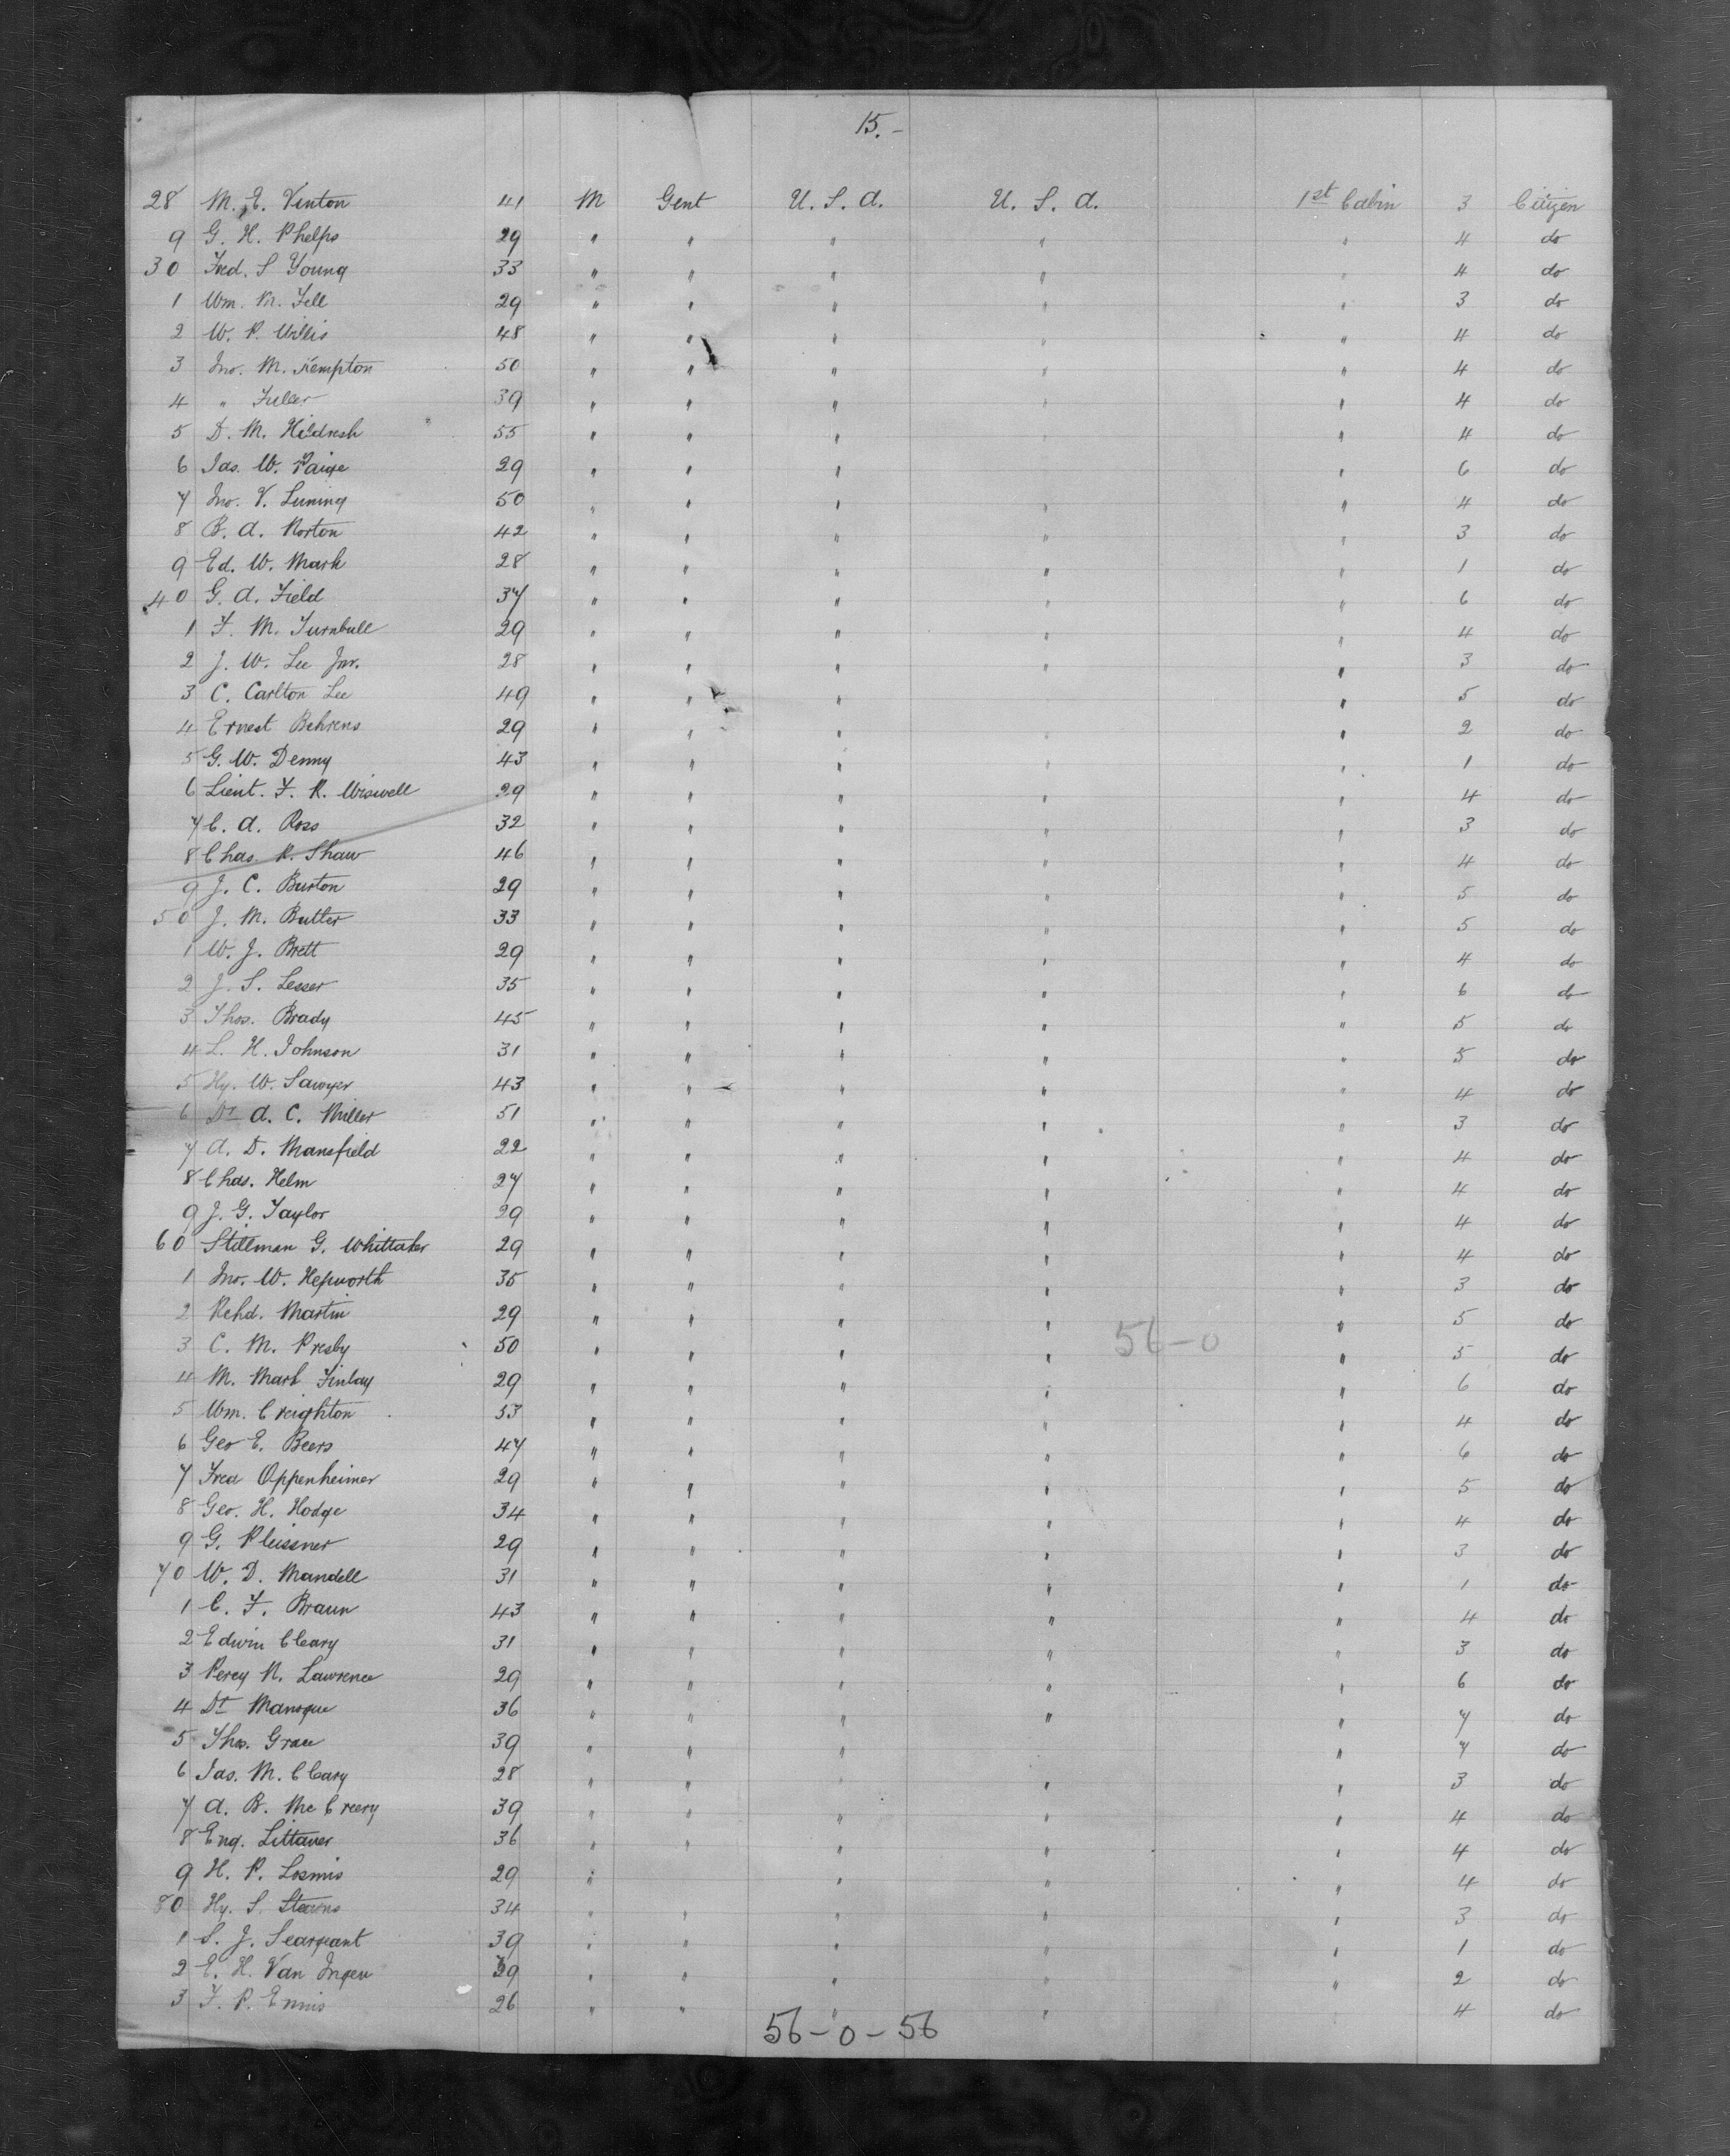 15.-
28 M. E. Vinton 41 M Gent U. S. A. U. S. A. 1st Cabin 3 Citizen
9 G. H. Phelps 29 " " " " " 4 do
30 Fred. S Young 33 " " " " " 4 do
1 Wm. M. Fell 29 " " " " " 3 do
2 W. P. Willis 48 " " " " " 4 do
3 Jno. M. Kempton 50 " " " " " 4 do
4 " Fuller 39 " " " " " 4 do
5 D. M. Hildresh 55 " " " " " 4 do
6 Jas. W. Paige 29 " " " " " 6 do
7 Jno. V. Luning 50 " " " " " 4 do
8 B. A. Norton 42 " " " " " 3 do
9 Ed. W. Mark 28 " " " " " 1 do
40 G. A. Field 37 " " " " " 6 do
1 F. M. Turnbull 29 " " " " " 4 do
2 J. W. Lee Jnr. 28 " " " " " 3 do
3 C. Carlton Lee 49 " " " " " 5 do
4 Ernest Behrens 29 " " " " " 2 do
5 G. W. Denny 43 " " " " " 1 do
6 Lieut. F. R. Wiswell 29 " " " " " 4 do
7 C. A. Ross 32 " " " " " 3 do
8 Chas. R. Shaw 46 " " " " " 4 do
9 J. C. Burton 29 " " " " " 5 do
50 J. M. Butler 33 " " " " " 5 do
1 W. J. Brett 29 " " " " " 4 do
2 J. S. Lesser 35 " " " " " 6 do
3 Thos. Brady 45 " " " " " 5 do
4 L. H. Johnson 31 " " " " " 5 do
5 Hy. W. Sawyer 43 " " " " " 4 do
6 Dr A. C. Miller 51 " " " " " 3 do
7 A. D. Mansfield 22 " " " " " 4 do
8 Chas. Helm 27 " " " " " 4 do
9 J. G. Taylor 29 " " " " " 4 do
60 Stillman G. Whittaker 29 " " " " " 4 do
1 Jno. W. Hepworth 35 " " " " " 3 do
2 Rchd. Martin 29 " " " " " 5 do
3 C. M. Presby 50 " " " " 56-0 " 5 do
4 M. Mark Finlay 29 " " " " " 6 do
5 Wm. Creighton 53 " " " " " 4 do
6 Geo E. Beers 47 " " " " " 6 do
7 Fred Oppenheimer 29 " " " " " 5 do
8 Geo. H. Hodge 34 " " " " " 4 do
9 G. Pleissner 29 " " " " " 3 do
70 W. D. Mandell 31 " " " " " 1 do
1 C. F. Braun 43 " " " " " 4 do
2 Edwin Cleary 31 " " " " " 3 do
3 Percy R. Lawrence 29 " " " " " 6 do
4 Dr 36 " " " " " 7 do
5 Thos. Grace 39 " " " " 7 do
6 Jas. M. Cleary 28 " " " " " 3 do
7 A. B. Mc Creery 39 " " " " " 4 do
8 Eug. Littauer 36 " " " " " 4 do
9 H. P. Loomis 29 " " " " 4 do
80 Hy. S. Stearns 34 " " " " " 3 do
1 S. J. Seargeant 39 " " " " " 1 do
2 E. H. Van Ingen 39 " " " " " 2 do
3 F. P. Ennis 26 " " " " 4 do
56-0-56